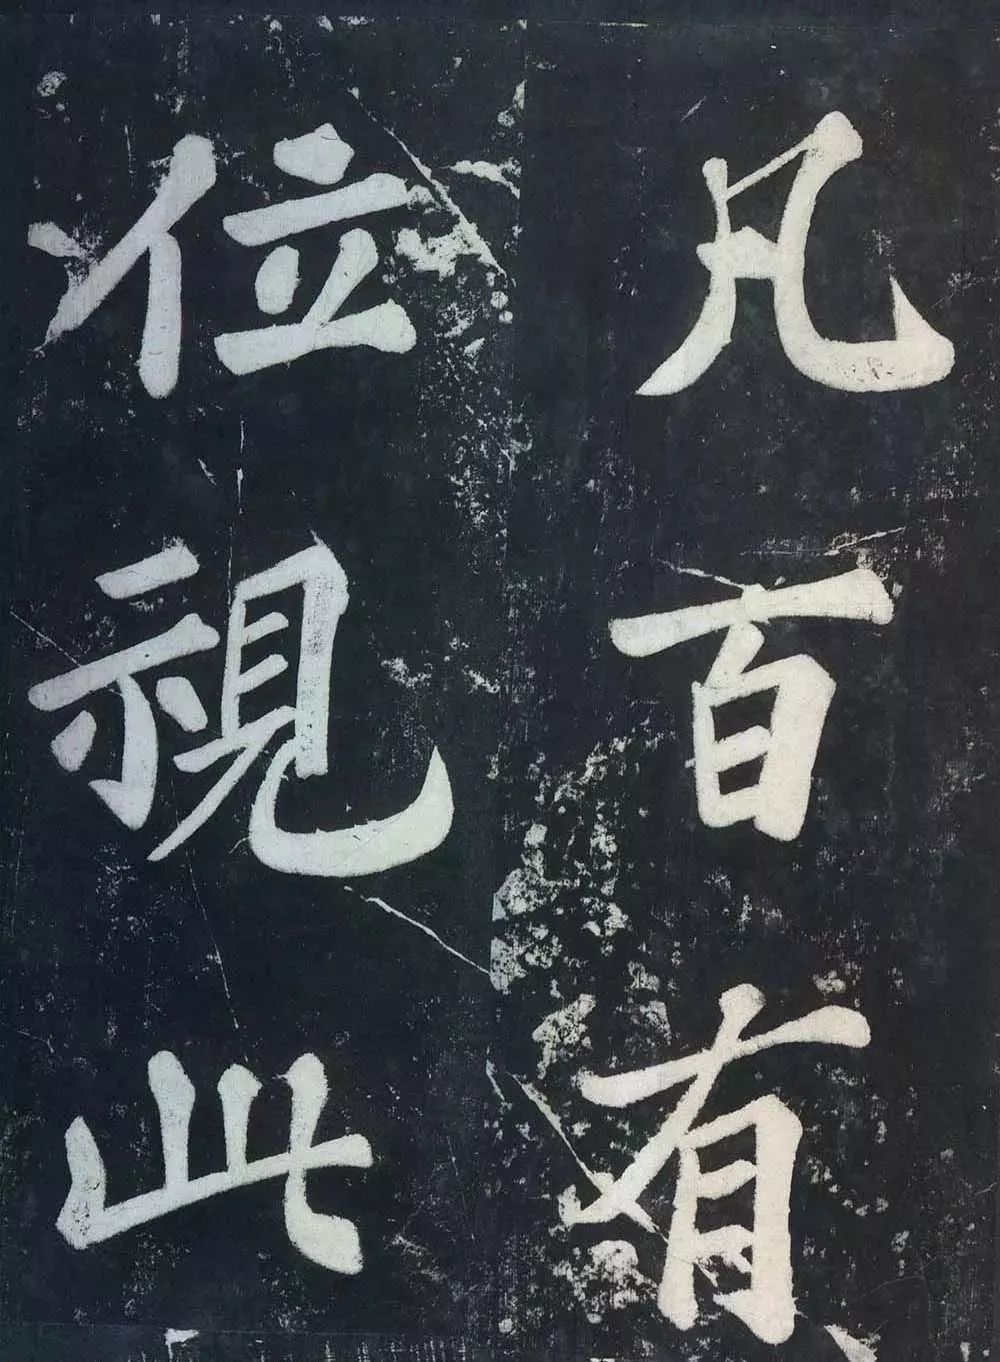 凡百有
位視此